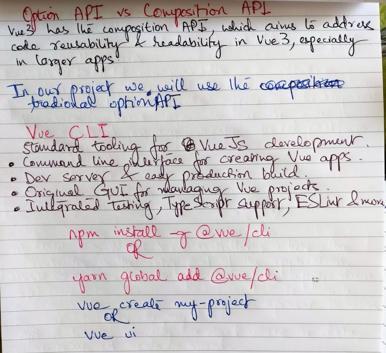 Option API vs Composition API
Vue3 has the composition API, which aims to address
code reusability & readability in Vue3, especially
in larger apps.
In our project we will use the
tradional option API
Vue CLI
Standard tooling for VueJs development.
• Command line interface for creating Vue apps.
• Dev server & easy production build.
• Original GUI for managing Vue projects.
• Integrated Testing, TypeScript support, ESLint & more.
npm install -g @vue/cli
OR
yarn global add @vue/cli
vue create my-project
OR
vue ui